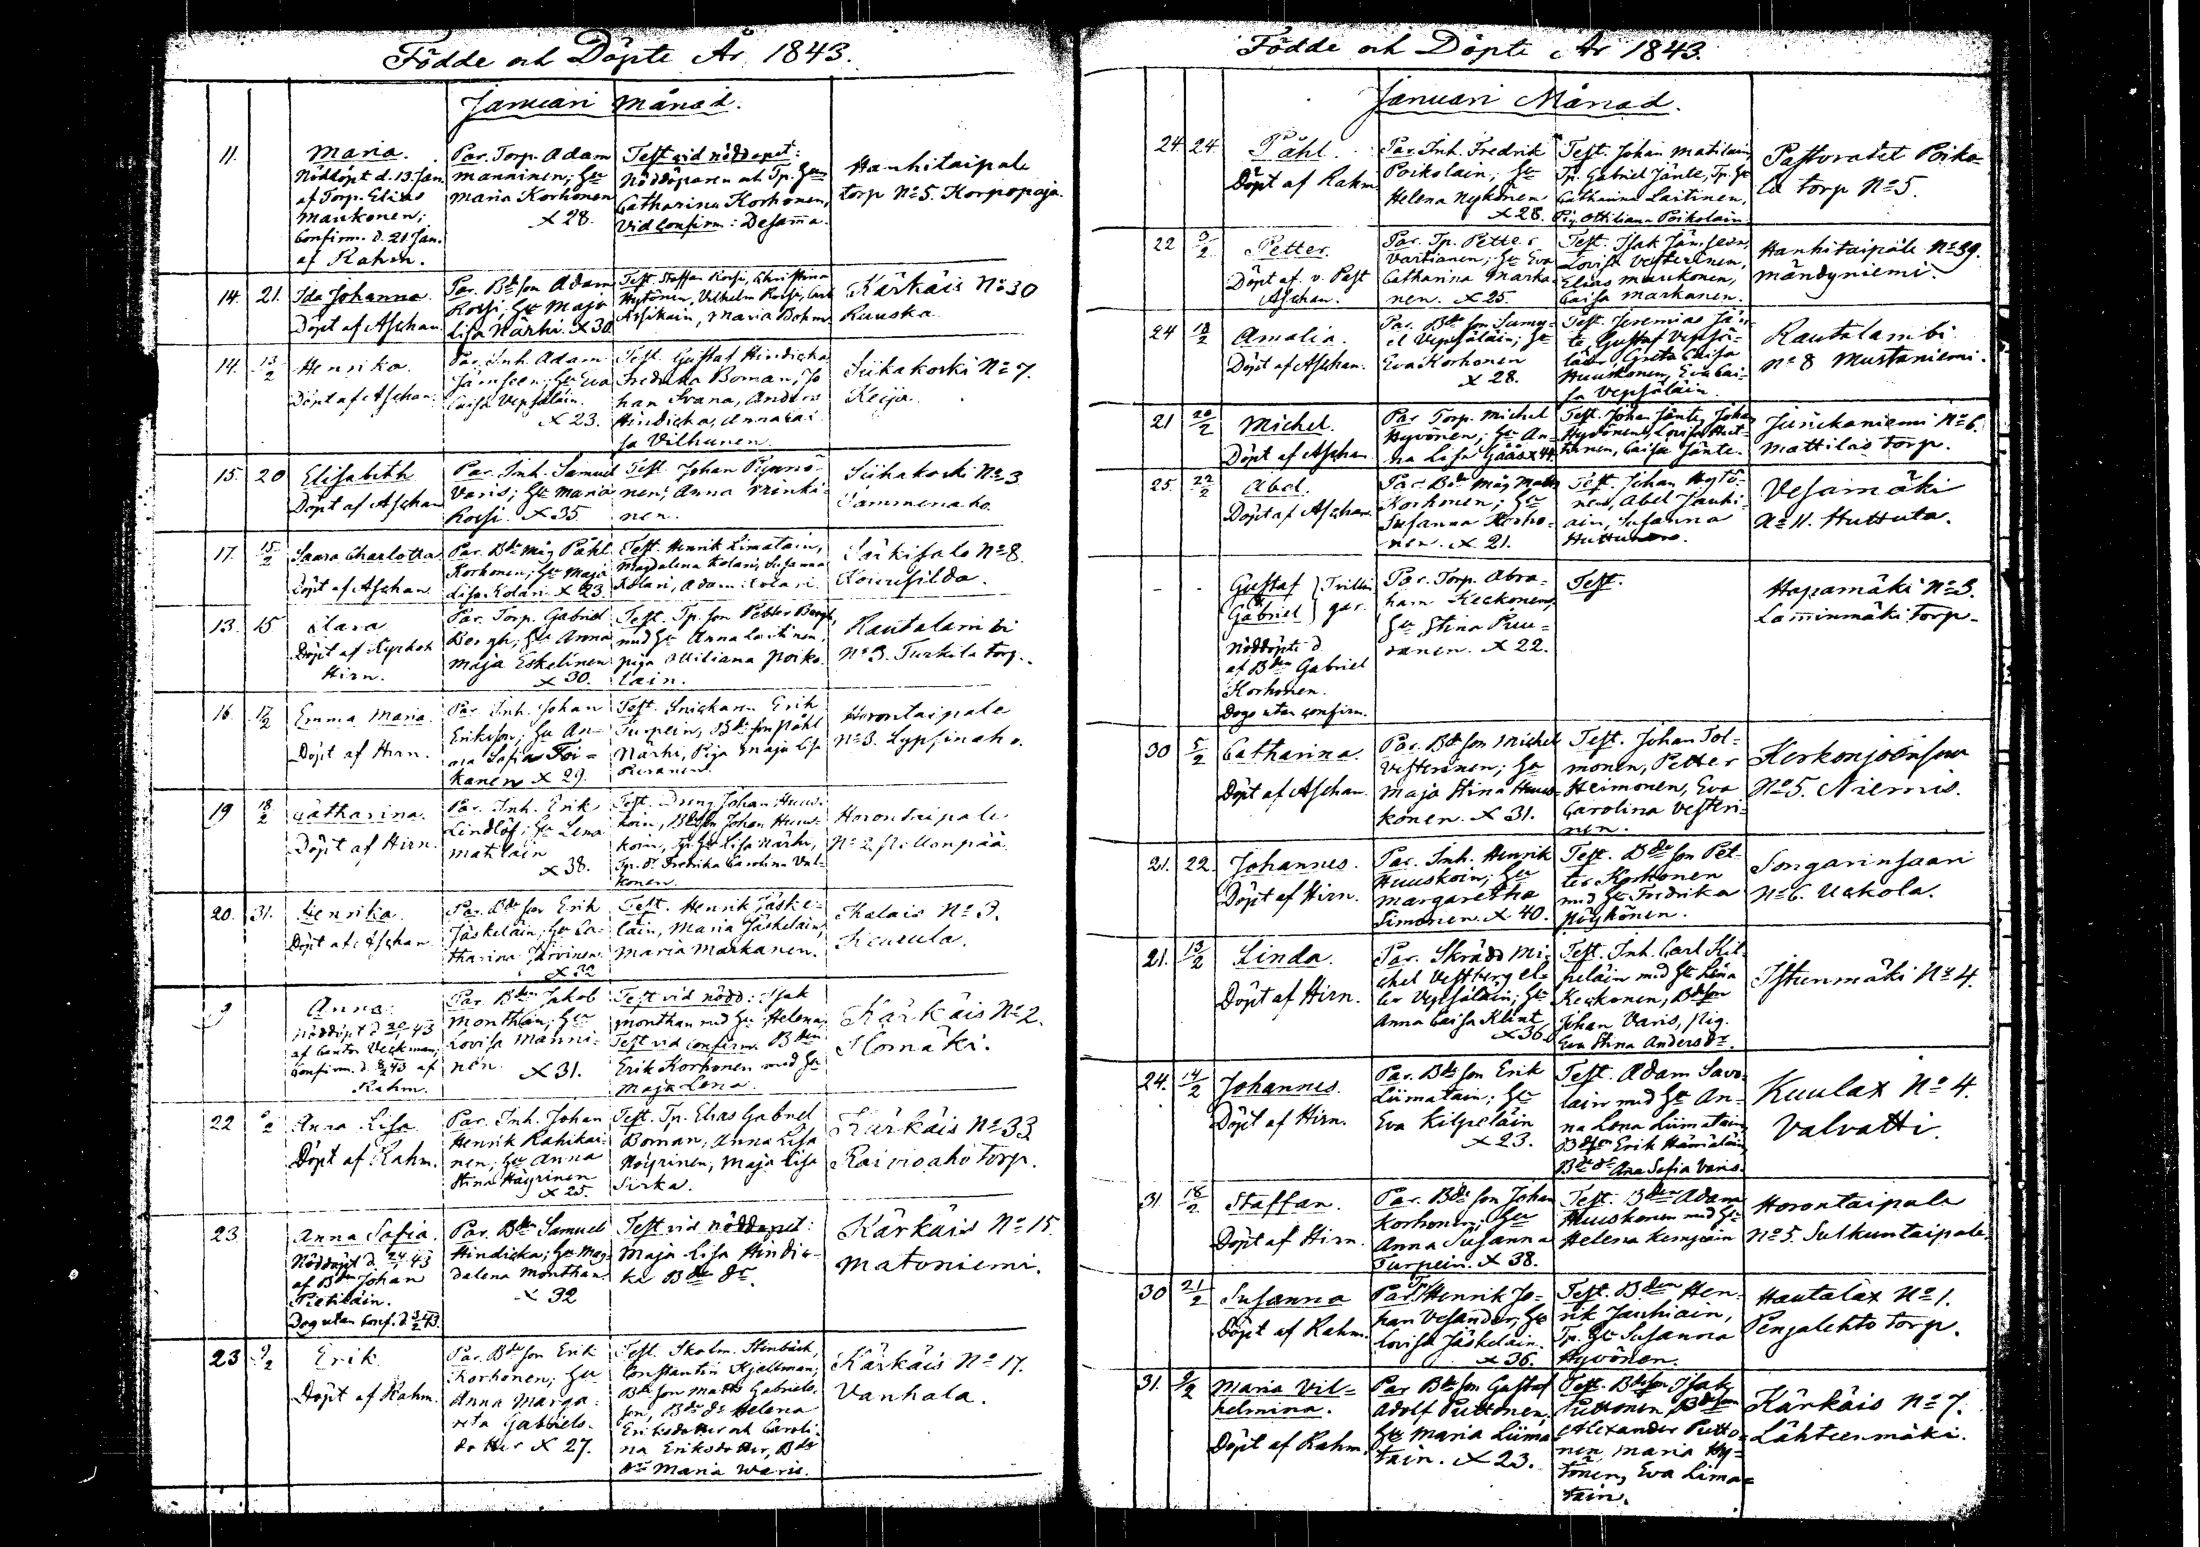 Födde och Döpte År 1843.
Januari månad.
11.
Maria.
Nöddöpt d. 13 Jan.
af Torp. Elias
Markonen;
Confirm. d. 21 Jan.
af Rahm.
Par. Torp. Adam
Manninen; Hu
Maria Korhonen
x 28.
Test vid nöddopet:
Nöddöparen och Tp. Hu
Catharina Korhonen,
Vid Confirm: Desamma.
Hanhitaipale
torp No 5. Korpopaja.
14. 21.
Ida Johanna.
Döpt af Aschan
Par. Bde son Adam
Rossi, Hu Maja
Lisa Närhi. x 30
Test. Staffan Rossi, Christina
Hytönen, Vilhelm Rossi, Carl
Assikain, Maria Bohm
Kärkäis No 30
Rauska.
14. 13/2
Henrika.
Döpt af Aschan.
Par. Inh. Adam
Jämseen; Hu Eva
Caisa Vepsäläin.
x 23.
Test. Gustaf Hindicka
Fredrika Boman, Jo
han Svana, Anders
Hindicka, Anna Cai
sa Vilhunen.
Siikakoski No 7.
Keija.
15. 20
Elisabeth
Döpt af Aschan
Par. Inh. Samuel
Varis; Hu Maria
Rossi. x 35.
Test. Johan Piennö-
nen; Anna Minki-
nen.
Siikakoski No 3
Sammenaho.
17. 15/2
Saara Charlotta
Döpt af Aschan
Par. Bde måg Påhl
Korhonen; Hu Maja
Lisa Kolari x 23.
Test. Henrik Limatain,
Magdalena Kolari, Susanna
Kolari, Adam Kolari.
Särkisalo No 8.
Koivusilda.
13. 15
Clara
Döpt af Kyrkoh
Hirn.
Par. Torp. Gabriel
Bergh; Hu Anna
Maja Eskelinen
x 30.
Test. Tp. son Petter Bergh,
med Hu Anna Laitinen,
piga Ottiliana Poiko-
lain.
Rautalambi
No 3. Turkila torp.
16. 17/2
Emma Maria.
Döpt af Hirn.
Par. Inh. Johan
Eriksson; Hu An-
na Sofia Toi-
kanen x 29.
Test. Snickaren Erik
Turpein, Bde son Påhl
Närhi, Piga Maja Lisa
Puranen.
Horontaipale
No 3. Lypsinaho.
19 18/2
Catharina.
Döpt af Hirn.
Par. Inh. Erik
Lindlöf; Hu Lena
Matilain
x 38.
Test. Dreng Johan Huus-
koin, Bde son Johan Huus-
koin, Tp. Hu Lisa Närhi,
Tp. dr Fredrika Carolina Val-
konen.
Horontaipale
No 2.
20. 31.
Henrika
Döpt af Aschan
Par. Bde son Erik
Jäskeläin; Hu Ca-
tharina Järvinen.
x 32
Test. Henrik Jäske-
läin, Maria Jäskeläin,
Maria Markanen.
Kalais No 3.
Keurula.
9
Anna.
af Cantor Veckman,
af
Rahm.
Par. Bden Jakob
Monthan; Hu
Lovisa Manni-
nen. x 31.
Test vid nödd: Isak
Monthan med Hu Helena;
Test vid Confirm. Bden
Erik Korhonen med Hu
Maja Lena.
Kärkäis No 2.
Ilomäki.
22 2/2
Anna Lisa
Döpt af Rahm.
Par. Inh. Johan
Henrik Rahikai-
nen; Hu Anna
Stina Häyrinen
x 25.
Test. Tp. Elias Gabriel
Boman, Anna Lisa
Höyrinen, Maja Lisa
Sirka.
Kärkäis No 33
Raivioaho torp.
23
Anna Sofia.
Nöddöpt d. 24/1 43
af Bden Johan
Pietiläin.
Dog utan Conf. d 3/2 43.
Par. Bden Samuel
Hindicka; Hu Mag-
dalena Monthan.
x 32
Test vid nöddopet:
Maja Lisa Hindic-
ka Bde dr.
Kärkäis No 15.
Matoniemi.
23 9/2
Erik
Döpt af Rahm.
Par. Bde son Erik
Korhonen; Hu
Anna Marga-
reta Gabriels-
dotter x 27.
Test. Skolm. Stenbäck,
Constantin Kjellman,
Bde son Matts Gabriels-
son, Bde dr Helena
Eriksdotter och Caroli-
na Eriksdotter, Bde
dr Maria Waris.
Kärkäis No 17.
Vanhala.
Födde och Döpte År 1843.
Januari Månad.
24. 24.
Påhl.
Döpt af Rahm.
Par. Inh. Fredrik
Poikolain; Hu
Helena Nykänen
x 28.
Test. Johan Matilain,
Tp. Gabriel Jänte, Tp. Hu
Catharina Laitinen,
Pig. Ottiliana Poikolain.
Pastoradet Poiko-
la torp No 5.
22 3/2
Petter.
Döpt af v. Past
Aschan.
Par. Tp. Petter
Vartianen; Hu Eva
Catharina Marka-
nen. x 25.
Test. Isak Jämseen,
Lovisa Vesterinen,
Elias Markonen,
Caisa Markanen.
Hanhitaipale No 39.
Mändyniemi.
24 12/2
Amalia.
Döpt af Aschan.
Par. Bde son Samu-
el Vepsäläin; Hu
Eva Korhonen
x 28.
Test. Jeremias Jän-
te, Gustaf Vepsä-
läin Greta Caisa
Huuskonen, Eva Cai-
sa Vepsäläin.
Rautalambi
No 8 Mustaniemi.
21 20/2
Michel.
Döpt af Aschan
Par Torp. Michel
Hyvönen; Hu An-
na Lisa Gääs x 44.
Test. Johan Jänte, Johan
Hyvönen, Lovisa Hut-
tunen, Caisa Jänte.
Jurickaniemi No 6.
Mattilas torp.
25. 22/2
Abel.
Döpt af Aschan
Par Bde måg Matts
Korhonen; Hu
Susanna Korho-
nen. x. 21.
Test. Johan Hytö-
nen, Abel Jauhi-
ain, Susanna
Huttunen.
Vesamäki
No 11. Huttula.
- -
Gustaf
&
Gabriel
Tvillin
gar.
Nöddöpte d
af Bden Gabriel
Korhonen.
Dogo utan confirm.
Par. Torp. Abra-
ham Keckonen,
Hu Stina Puu-
ranen. x 22.
Test.
Hapamäki No 3.
Lamminmäki torp.
30 5/2
Catharina.
Döpt af Aschan.
Par. Bde son Michel
Vesterinen; Hu
Maja Stina Huus-
konen. x 31.
Test. Johan Tol-
monen, Petter
Heimonen, Eva
Carolina Vesteri-
nen.
Kerkonjoensuu
No 5. Niemis.
21. 22.
Johannes.
Döpt af Hirn.
Par. Inh. Henrik
Huuskoin; Hu
Margaretha
Simonen. x 40.
Test. Bde son Pet-
ter Korhonen
med Hu Fredrika
Pöyhönen.
Songarinsaari
No 6. Uckola.
21. 13/2
Linda.
Döpt af Hirn.
Par. Skrädd Mi-
chel Vestberg el-
ler Vepsäläin; Hu
Anna Caisa Klint
x 36.
Test. Inh. Carl Kil-
peläin med Hu Lena
Keckonen, Bde son
Johan Varis, Pig.
Eva Stina Anders dr.
Istunmäki No 4.
24. 14/2
Johannes.
Döpt af Hirn.
Par. Bde son Erik
Liimatain; Hu
Eva Kilpeläin
x 23.
Test. Adam Savo-
lain med Hu An-
na Lena Liimatain,
Bde son Erik Hämäläin,
Bde dr Ana Sofia Varis.
Kuulax No 4.
Valvatti.
31 18/2
Staffan.
Döpt af Hirn.
Par. Bde son Johan
Korhonen; Hu
Anna Susanna
Turpein. x 38.
Test. Bden Adam
Huuskonen med Hu
Helena Kempain
Horontaipale
No 5. Sulkuntaipale.
30 21/2
Susanna
Döpt af Rahm.
Par. Tp. Henrik Jo-
han Vesander; Hu
Lovisa Jäskeläin.
x 36.
Test. Bden Hen-
rik Jauhiain,
Tp. Hu Susanna
Hyvönen.
Hautalax No 1.
Pengalehto torp.
31. 9/2
Maria Vil-
helmina.
Döpt af Rahm.
Par Bde son Gustaf
Adolf Puttonen,
Hu Maria Liima-
tain. x 23.
Test. Bde son Isak
Puttonen, Bde son
Alexander Putto-
nen, Maria Hy-
tönen, Eva Lima-
tain.
Kärkäis No 7.
Lähteenmäki.